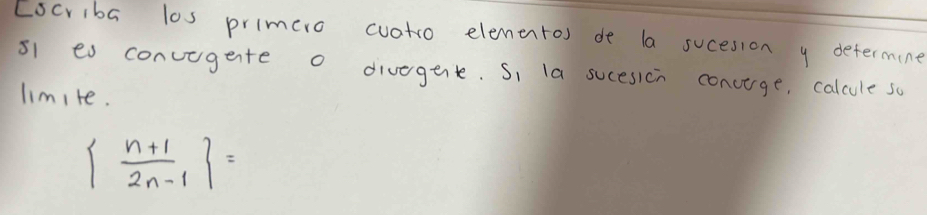 Escriba los primero cuatro elementos de la sucesion y determine
si es convergente o divergente. Si la sucesión converge, calcule su
limite.
{ n+1 / 2n-1 } =